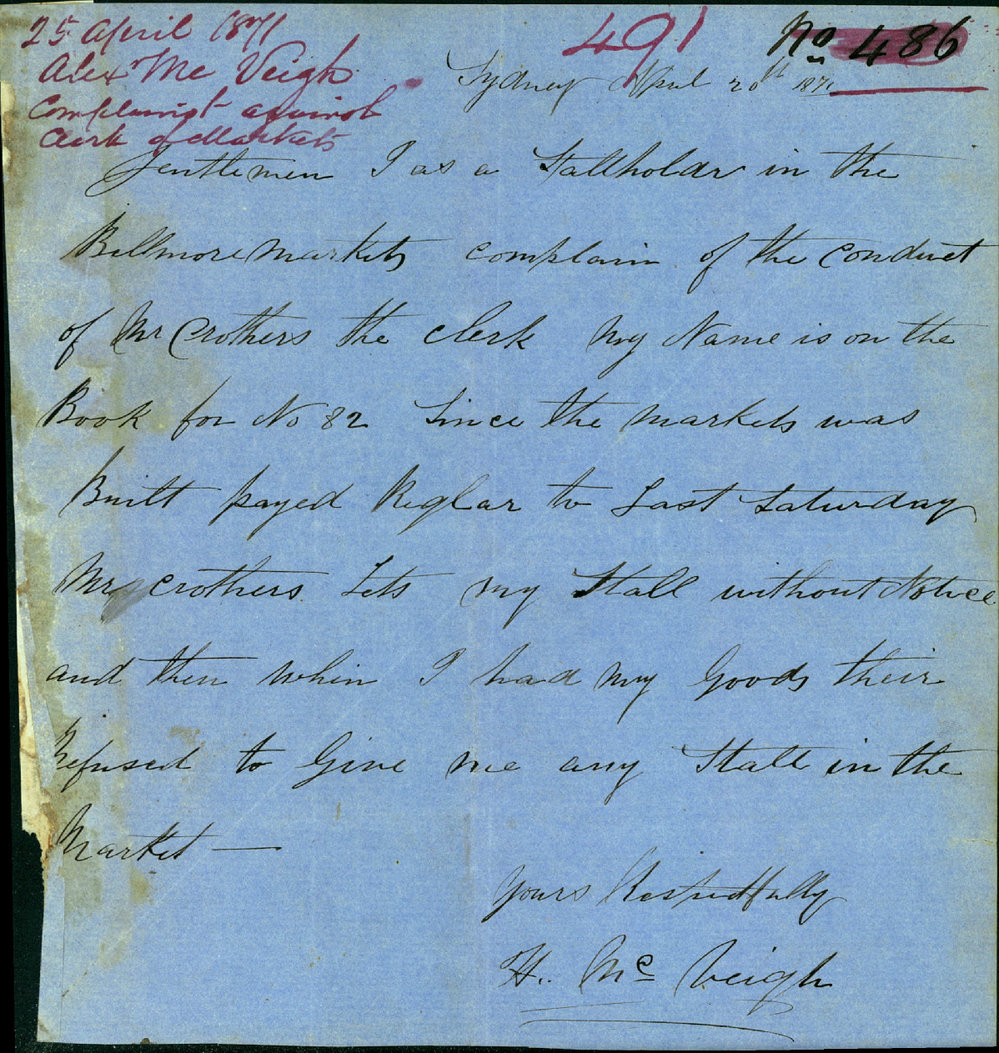 25 April 1871
Alexr Mc Veigh
Complaint against
Clerk of Markets
491
No 486
Sydney April 20th 1871
Gentlemen I as a Stallholdr in the
Bellmore Markets complain of the conduct
of Mr Crothers the Clerk My Name is on the
Book for No 82 Since the Markets was
Built payed Reglar to Last Saturday
Mr Crothers Lets my Stall without Notice
and then when I had my Goods their
Refused to Give me any Stall in the
Market —
Yours Respectfully
H. Mc Veigh